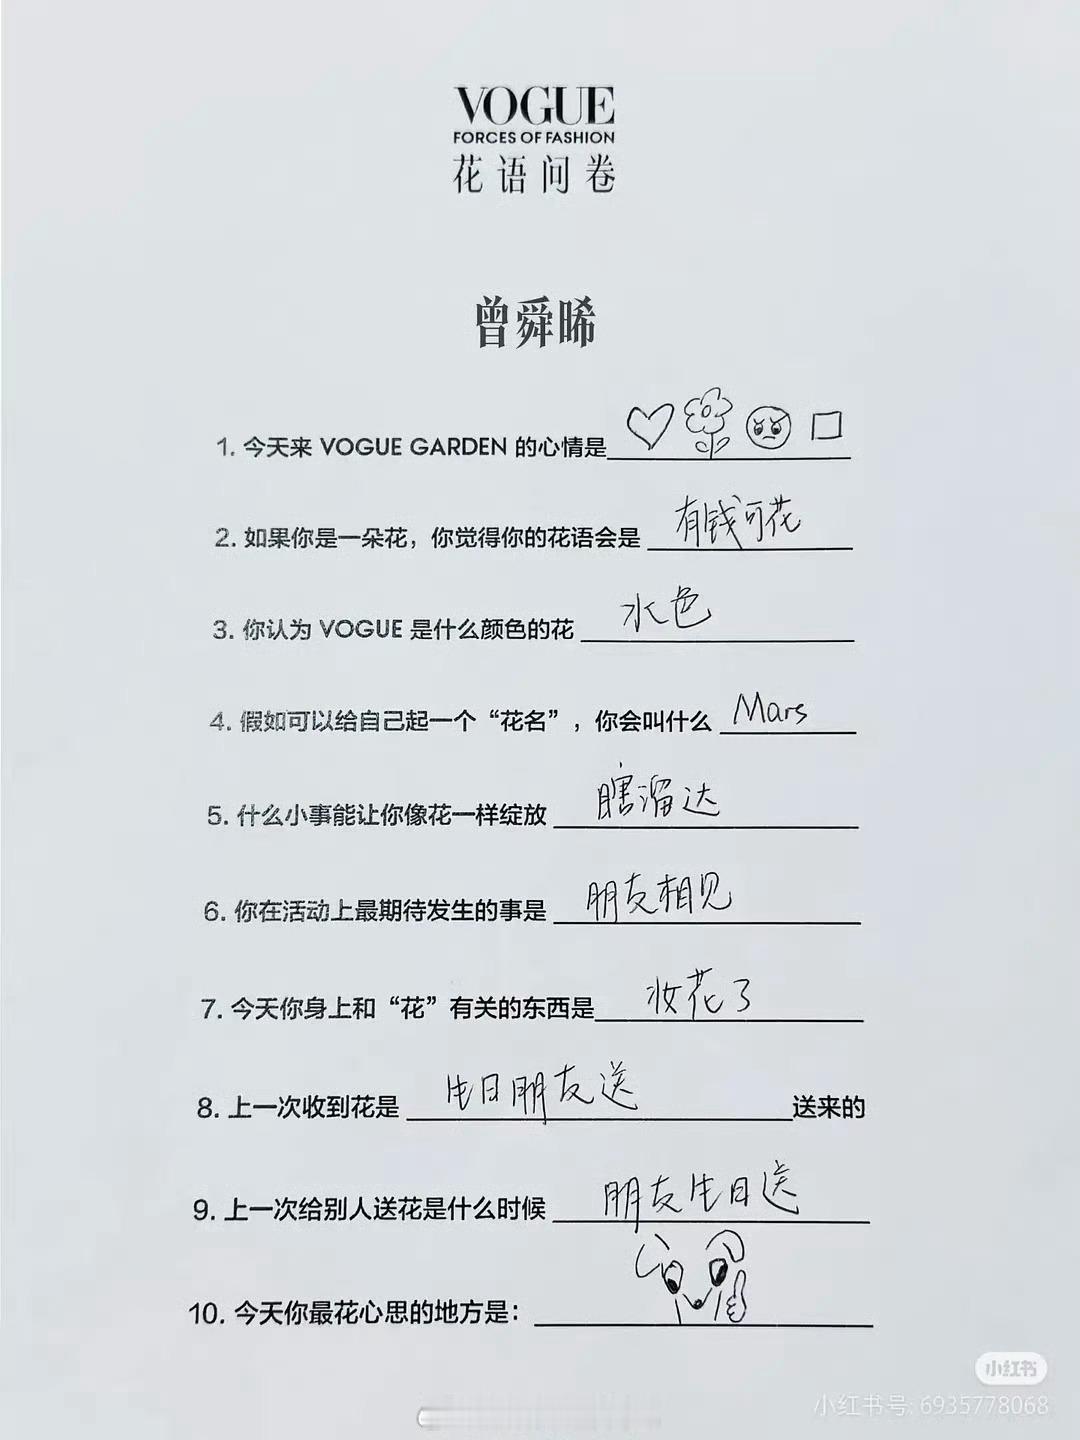 VOGUE
FORCES OF FASHION
花语问卷
曾舜晞
1. 今天来 VOGUE GARDEN 的心情是
2. 如果你是一朵花，你觉得你的花语会是 有钱可花
3. 你认为 VOGUE 是什么颜色的花 水色
4. 假如可以给自己起一个“花名”，你会叫什么 Mars
5. 什么小事能让你像花一样绽放 瞎溜达
6. 你在活动上最期待发生的事是 朋友相见
7. 今天你身上和“花”有关的东西是 妆花了
8. 上一次收到花是 生日朋友送 送来的
9. 上一次给别人送花是什么时候 朋友生日送
10. 今天你最花心思的地方是：
小红书
小红书号: 6935778068